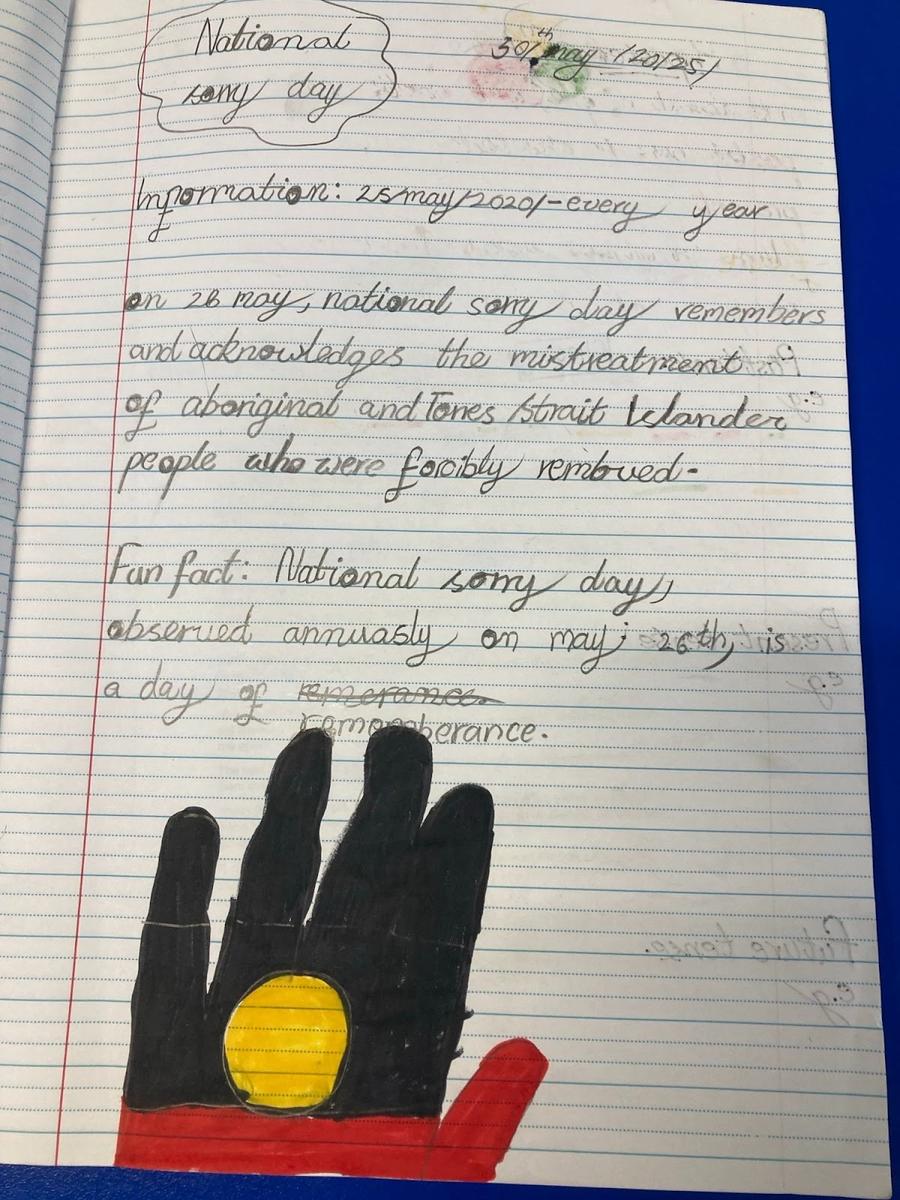 National
sorry day
30/th may /2025/
Information: 25/may/2020/-every year
on 26 may, national sorry day remembers
and acknowledges the mistreatment
of aboriginal and Torres Strait Islander
people who were forcibly removed.
Fun fact: National sorry day,
observed annuasly on may 26th, is
a day of remerance.
rememberance.
Past
e.g
Present
e.g
Future tence.
e.g